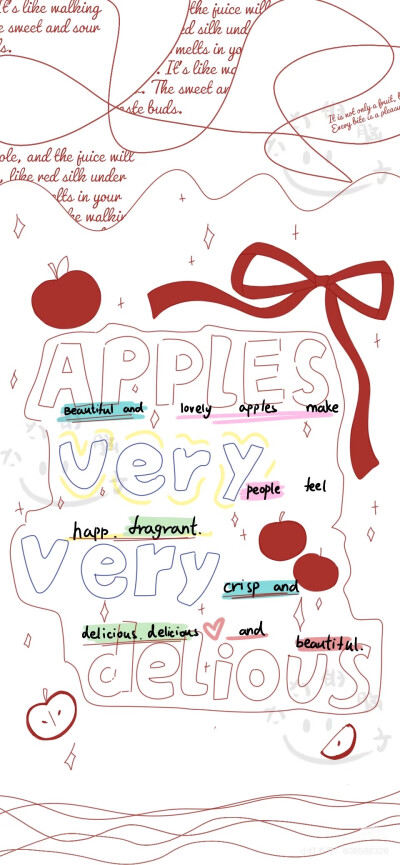 it's like walking
the sweet and sour
the juice will
red silk und
melts in yo
. It's like wa
. The sweet an
taste buds.
It is not only a fruit,
Every bite is a pleasu
ple, and the juice will
, like red silk under
lts in your
ke walkin
APPLES
Beautiful and lovely apples make
very
people feel
happ. fragrant.
very
crisp and
delicious. delicious and beautiful.
delious